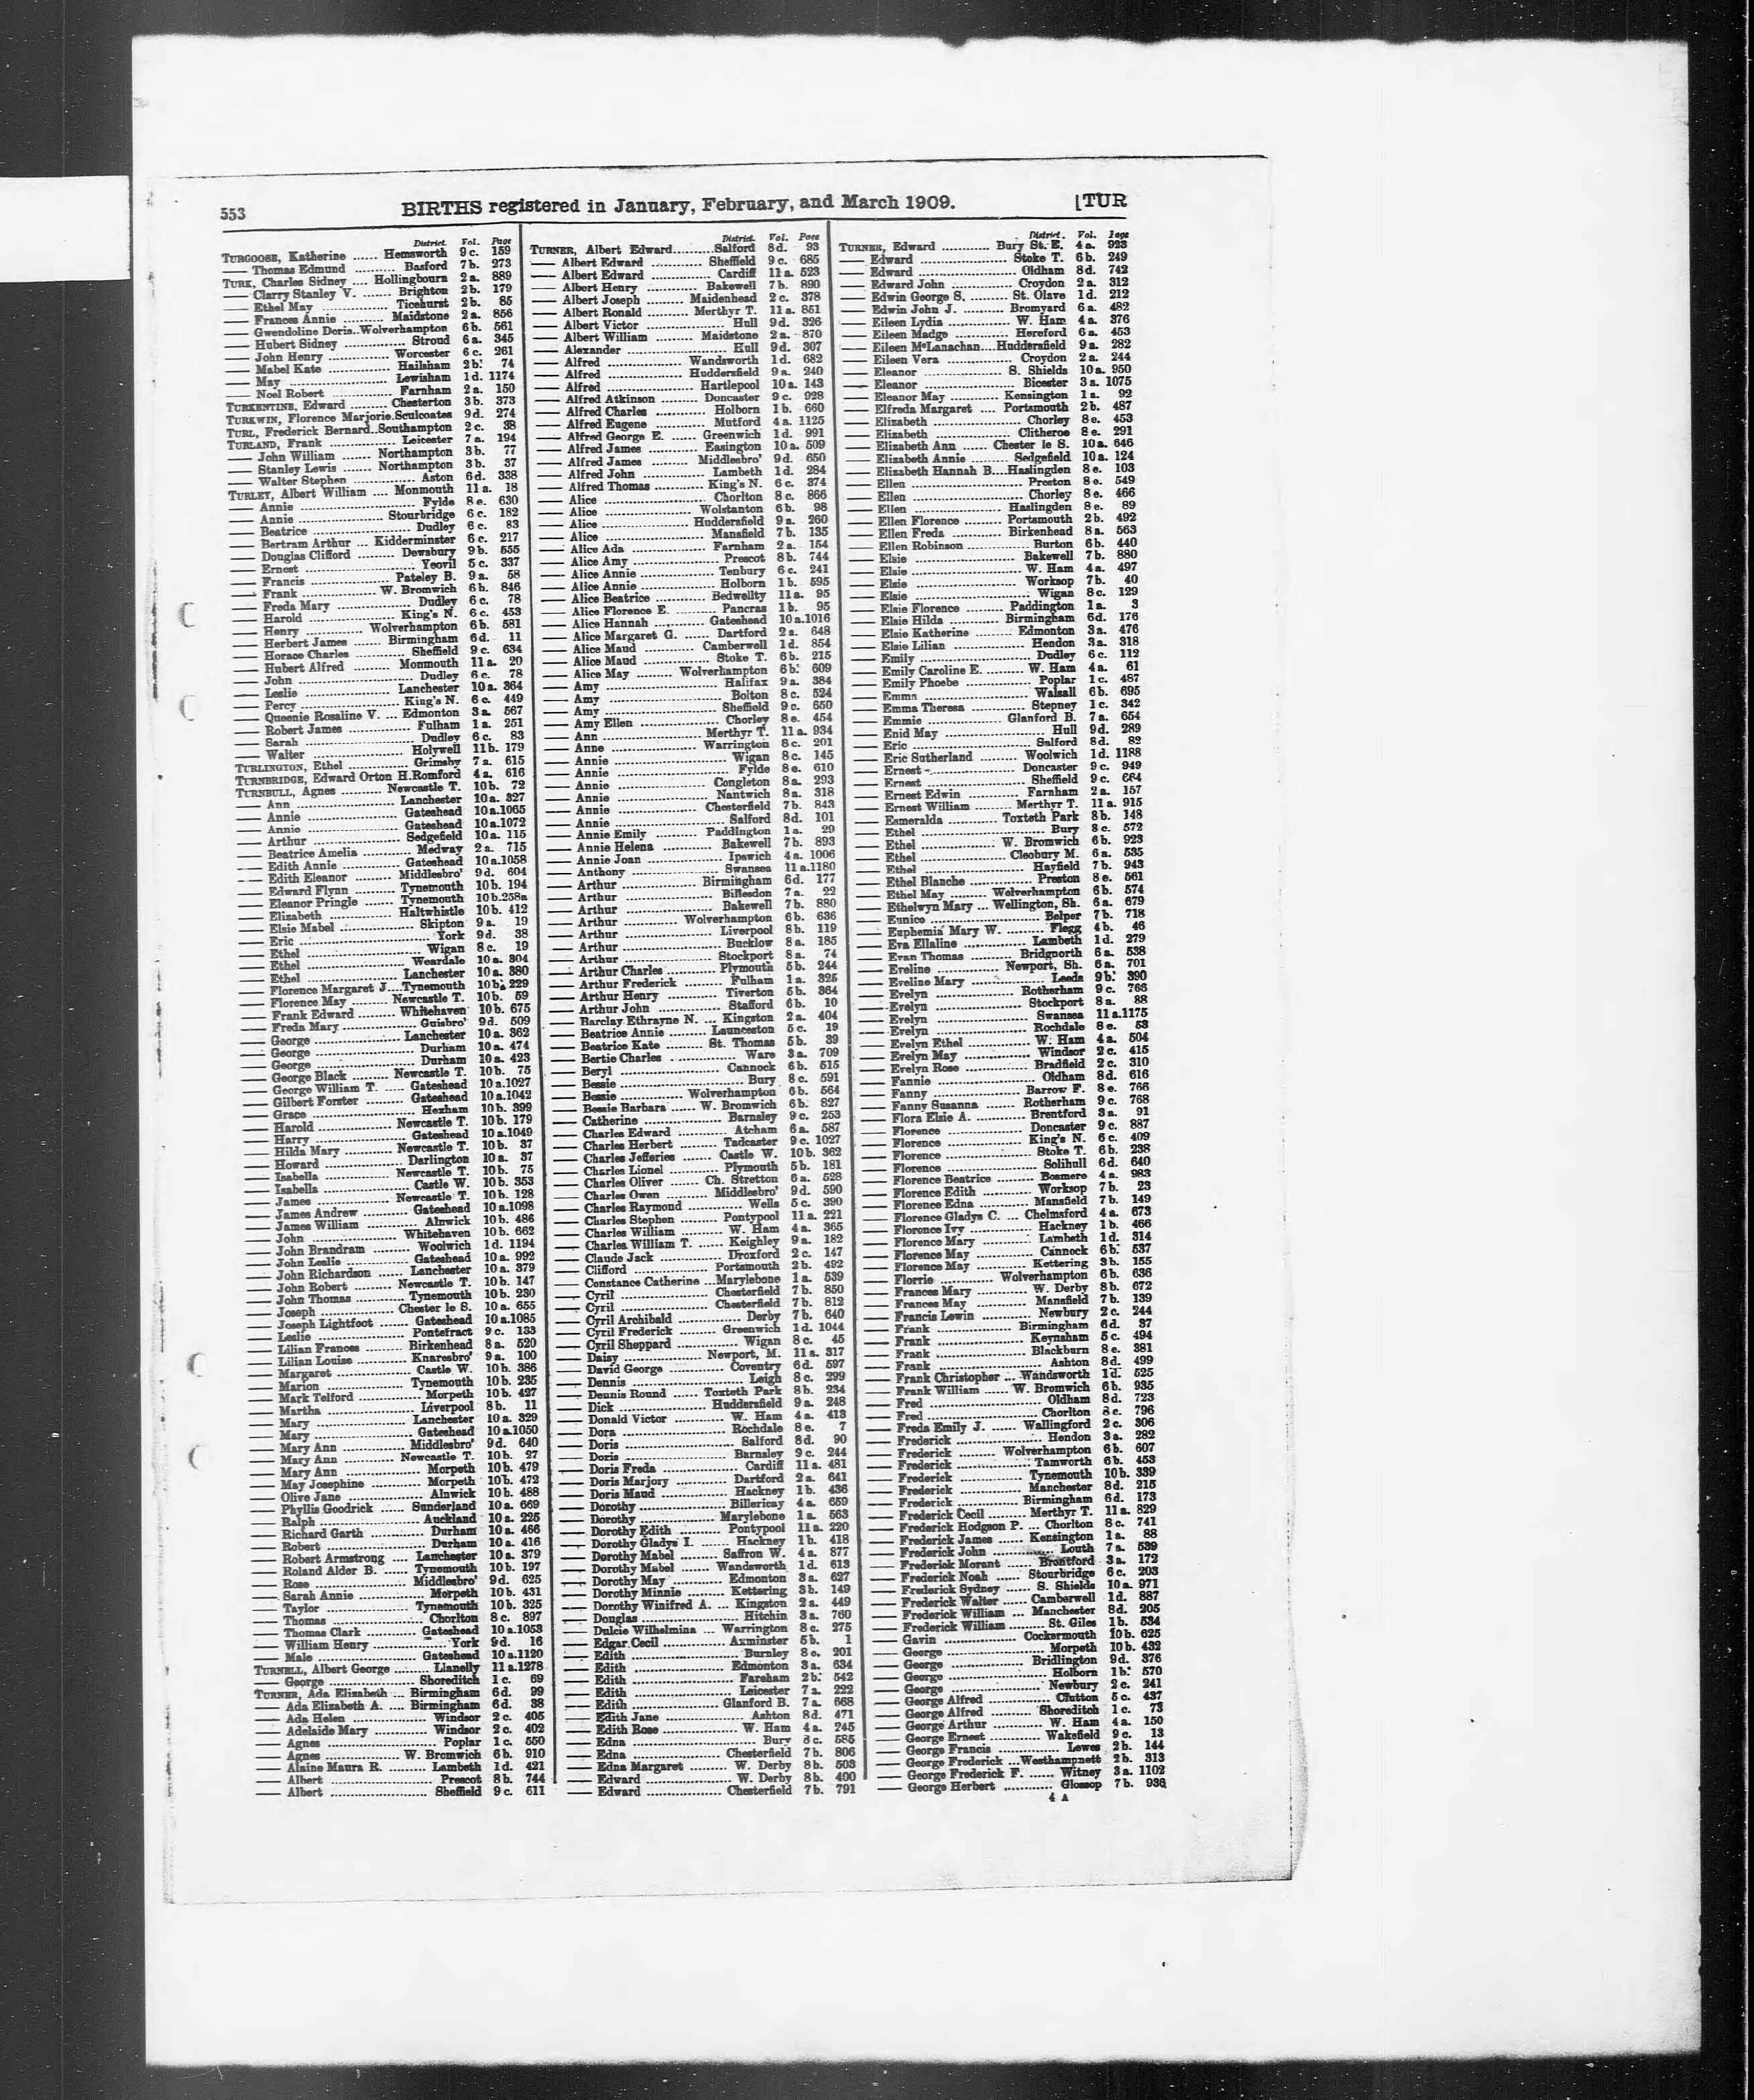 553
BIRTHS registered in January, February, and March 1909.
[TUR
District. Vol. Page
TURGOOSE, Katherine ...... Hemsworth 9 c. 159
—— Thomas Edmund ........ Basford 7 b. 273
TURK, Charles Sidney .... Hollingbourn 2 a. 889
—— Clarry Stanley V. ....... Brighton 2 b. 179
—— Ethel May ............... Ticehurst 2 b. 85
—— Frances Annie ......... Maidstone 2 a. 856
—— Gwendoline Doris..Wolverhampton 6 b. 561
—— Hubert Sidney ............... Stroud 6 a. 345
—— John Henry ............... Worcester 6 c. 261
—— Mabel Kate ............... Hailsham 2 b. 74
—— May ......................... Lewisham 1 d. 1174
—— Noel Robert ............... Farnham 2 a. 150
TURKENTINE, Edward ......... Chesterton 3 b. 373
TURKWIN, Florence Marjorie.Sculcoates 9 d. 274
TURL, Frederick Bernard..Southampton 2 c. 38
TURLAND, Frank ............... Leicester 7 a. 194
—— John William ....... Northampton 3 b. 77
—— Stanley Lewis ....... Northampton 3 b. 37
—— Walter Stephen ............... Aston 6 d. 338
TURLEY, Albert William .... Monmouth 11 a. 18
—— Annie ............................ Fylde 8 e. 630
—— Annie ..................... Stourbridge 6 c. 182
—— Beatrice ..................... Dudley 6 c. 83
—— Bertram Arthur ... Kidderminster 6 c. 217
—— Douglas Clifford ......... Dewsbury 9 b. 555
—— Ernest ........................ Yeovil 5 c. 337
—— Francis ................. Pateley B. 9 a. 58
—— Frank ................. W. Bromwich 6 b. 846
—— Freda Mary ................. Dudley 6 c. 78
—— Harold ..................... King's N. 6 c. 453
—— Henry ............. Wolverhampton 6 b. 581
—— Herbert James ........ Birmingham 6 d. 11
—— Horace Charles ............ Sheffield 9 c. 634
—— Hubert Alfred ......... Monmouth 11 a. 20
—— John .......................... Dudley 6 c. 78
—— Leslie .................... Lanchester 10 a. 364
—— Percy ....................... King's N. 6 c. 449
—— Queenie Rosaline V. ... Edmonton 3 a. 567
—— Robert James ............... Fulham 1 a. 251
—— Sarah ........................ Dudley 6 c. 83
—— Walter ..................... Holywell 11 b. 179
TURLINGTON, Ethel ............... Grimsby 7 a. 615
TURNBRIDGE, Edward Orton H.Romford 4 a. 616
TURNBULL, Agnes ......... Newcastle T. 10 b. 72
—— Ann ...................... Lanchester 10 a. 327
—— Annie .................... Gateshead 10 a.1065
—— Annie .................... Gateshead 10 a.1072
—— Arthur .................. Sedgefield 10 a. 115
—— Beatrice Amelia ........... Medway 2 a. 715
—— Edith Annie ............ Gateshead 10 a.1058
—— Edith Eleanor ........ Middlesbro' 9 d. 604
—— Edward Flynn ......... Tynemouth 10 b. 194
—— Eleanor Pringle ...... Tynemouth 10 b.258a
—— Elizabeth ............... Haltwhistle 10 b. 412
—— Elsie Mabel ................. Skipton 9 a. 19
—— Eric ............................ York 9 d. 38
—— Ethel ......................... Wigan 8 c. 19
—— Ethel ..................... Weardale 10 a. 304
—— Ethel ................... Lanchester 10 a. 380
—— Florence Margaret J....Tynemouth 10 b. 229
—— Florence May ....... Newcastle T. 10 b. 59
—— Frank Edward ........ Whitehaven 10 b. 675
—— Freda Mary ............... Guisbro' 9 d. 509
—— George ................. Lanchester 10 a. 362
—— George ....................... Durham 10 a. 474
—— George ....................... Durham 10 a. 423
—— George Black ......... Newcastle T. 10 b. 75
—— George William T. ..... Gateshead 10 a.1027
—— Gilbert Forster ......... Gateshead 10 a.1042
—— Grace ......................... Hexham 10 b. 399
—— Harold ............... Newcastle T. 10 b. 179
—— Harry ..................... Gateshead 10 a.1049
—— Hilda Mary ............ Newcastle T. 10 b. 37
—— Howard .................. Darlington 10 a. 37
—— Isabella ............... Newcastle T. 10 b. 75
—— Isabella .................. Castle W. 10 b. 353
—— James ................. Newcastle T. 10 b. 128
—— James Andrew ......... Gateshead 10 a.1098
—— James William ............ Alnwick 10 b. 486
—— John .................... Whitehaven 10 b. 662
—— John Brandram ......... Woolwich 1 d. 1194
—— John Leslie ............ Gateshead 10 a. 992
—— John Richardson ...... Lanchester 10 a. 379
—— John Robert ......... Newcastle T. 10 b. 147
—— John Thomas ......... Tynemouth 10 b. 230
—— Joseph ............... Chester le S. 10 a. 655
—— Joseph Lightfoot ...... Gateshead 10 a.1085
—— Leslie .................. Pontefract 9 c. 133
—— Lilian Frances ....... Birkenhead 8 a. 520
—— Lilian Louise ......... Knaresbro' 9 a. 100
—— Margaret ............... Castle W. 10 b. 386
—— Marion ................. Tynemouth 10 b. 235
—— Mark Telford ............. Morpeth 10 b. 427
—— Martha .................... Liverpool 8 b. 11
—— Mary ...................... Lanchester 10 a. 329
—— Mary ...................... Gateshead 10 a.1050
—— Mary Ann ............. Middlesbro' 9 d. 640
—— Mary Ann ............ Newcastle T. 10 b. 27
—— Mary Ann .................. Morpeth 10 b. 479
—— May Josephine ............ Morpeth 10 b. 472
—— Olive Jane .................. Alnwick 10 b. 488
—— Phyllis Goodrick ...... Sunderland 10 a. 669
—— Ralph ...................... Auckland 10 a. 225
—— Richard Garth ............. Durham 10 a. 466
—— Robert ...................... Durham 10 a. 416
—— Robert Armstrong .... Lanchester 10 a. 379
—— Roland Alder B. ..... Tynemouth 10 b. 197
—— Rose .................... Middlesbro' 9 d. 625
—— Sarah Annie ............... Morpeth 10 b. 431
—— Taylor .................. Tynemouth 10 b. 325
—— Thomas .................. Chorlton 8 c. 897
—— Thomas Clark ......... Gateshead 10 a.1053
—— William Henry ............... York 9 d. 16
—— Male ..................... Gateshead 10 a.1120
TURNELL, Albert George ......... Llanelly 11 a.1278
—— George .................. Shoreditch 1 c. 69
TURNER, Ada Elizabeth ... Birmingham 6 d. 99
—— Ada Elizabeth A. .... Birmingham 6 d. 38
—— Ada Helen ................. Windsor 2 c. 405
—— Adelaide Mary ............ Windsor 2 c. 402
—— Agnes ........................ Poplar 1 c. 550
—— Agnes ................ W. Bromwich 6 b. 910
—— Alaine Maura R. ......... Lambeth 1 d. 421
—— Albert ........................ Prescot 8 b. 744
—— Albert ....................... Sheffield 9 c. 611
District. Vol. Page
TURNER, Albert Edward......... Salford 8 d. 93
—— Albert Edward ............ Sheffield 9 c. 685
—— Albert Edward ............. Cardiff 11 a. 523
—— Albert Henry ............ Bakewell 7 b. 890
—— Albert Joseph ......... Maidenhead 2 c. 378
—— Albert Ronald ......... Merthyr T. 11 a. 851
—— Albert Victor ................ Hull 9 d. 326
—— Albert William ......... Maidstone 2 a. 870
—— Alexander ..................... Hull 9 d. 307
—— Alfred .................. Wandsworth 1 d. 682
—— Alfred ................. Huddersfield 9 a. 240
—— Alfred ................... Hartlepool 10 a. 143
—— Alfred Atkinson ......... Doncaster 9 c. 928
—— Alfred Charles ............ Holborn 1 b. 660
—— Alfred Eugene ............ Mutford 4 a. 1125
—— Alfred George E. ....... Greenwich 1 d. 991
—— Alfred James ............ Easington 10 a. 509
—— Alfred James ......... Middlesbro' 9 d. 650
—— Alfred John .............. Lambeth 1 d. 284
—— Alfred Thomas ............ King's N. 6 c. 374
—— Alice ........................ Chorlton 8 c. 866
—— Alice .................... Wolstanton 6 b. 98
—— Alice ................... Huddersfield 9 a. 260
—— Alice ..................... Mansfield 7 b. 135
—— Alice Ada ................. Farnham 2 a. 154
—— Alice Amy .................. Prescot 8 b. 744
—— Alice Annie ................ Tenbury 6 c. 241
—— Alice Annie ................ Holborn 1 b. 595
—— Alice Beatrice ......... Bedwellty 11 a. 95
—— Alice Florence E. ......... Pancras 1 b. 95
—— Alice Hannah ............ Gateshead 10 a.1016
—— Alice Margaret G. ...... Dartford 2 a. 648
—— Alice Maud ............ Camberwell 1 d. 854
—— Alice Maud ................ Stoke T. 6 b. 215
—— Alice May ......... Wolverhampton 6 b. 609
—— Amy .......................... Halifax 9 a. 384
—— Amy ........................... Bolton 8 c. 524
—— Amy ........................ Sheffield 9 c. 650
—— Amy Ellen .................. Chorley 8 e. 454
—— Ann ....................... Merthyr T. 11 a. 934
—— Anne ................... Warrington 8 c. 201
—— Annie ......................... Wigan 8 c. 145
—— Annie .......................... Fylde 8 e. 610
—— Annie ..................... Congleton 8 a. 293
—— Annie ...................... Nantwich 8 a. 318
—— Annie ................... Chesterfield 7 b. 843
—— Annie ....................... Salford 8 d. 101
—— Annie Emily ........... Paddington 1 a. 29
—— Annie Helena ............ Bakewell 7 b. 893
—— Annie Joan ................ Ipswich 4 a. 1006
—— Anthony ................... Swansea 11 a.1180
—— Arthur .................. Birmingham 6 d. 177
—— Arthur ..................... Billesdon 7 a. 22
—— Arthur ..................... Bakewell 7 b. 880
—— Arthur ............. Wolverhampton 6 b. 636
—— Arthur .................... Liverpool 8 b. 119
—— Arthur ...................... Bucklow 8 a. 185
—— Arthur .................... Stockport 8 a. 74
—— Arthur Charles ........... Plymouth 5 b. 244
—— Arthur Frederick ......... Fulham 1 a. 325
—— Arthur Henry ............ Tiverton 5 b. 364
—— Arthur John .............. Stafford 6 b. 10
—— Barclay Ethrayne N. ... Kingston 2 a. 404
—— Beatrice Annie ........ Launceston 5 c. 19
—— Beatrice Kate ......... St. Thomas 5 b. 39
—— Bertie Charles ............... Ware 3 a. 709
—— Beryl ........................ Cannock 6 b. 515
—— Bessie .......................... Bury 8 c. 591
—— Bessie ............. Wolverhampton 6 b. 564
—— Bessie Barbara ...... W. Bromwich 6 b. 827
—— Catherine .................. Barnsley 9 c. 253
—— Charles Edward ........... Atcham 6 a. 587
—— Charles Herbert ......... Tadcaster 9 c. 1027
—— Charles Jefferies ...... Castle W. 10 b. 362
—— Charles Lionel ......... Plymouth 5 b. 181
—— Charles Oliver ...... Ch. Stretton 6 a. 528
—— Charles Owen ....... Middlesbro' 9 d. 590
—— Charles Raymond ........... Wells 5 c. 390
—— Charles Stephen ......... Pontypool 11 a. 221
—— Charles William ........... W. Ham 4 a. 365
—— Charles William T. ...... Keighley 9 a. 182
—— Claude Jack ............... Droxford 2 c. 147
—— Clifford ................. Portsmouth 2 b. 492
—— Constance Catherine ...Marylebone 1 a. 539
—— Cyril ................... Chesterfield 7 b. 850
—— Cyril ................... Chesterfield 7 b. 812
—— Cyril Archibald ............. Derby 7 b. 640
—— Cyril Frederick ......... Greenwich 1 d. 1044
—— Cyril Sheppard .............. Wigan 8 c. 45
—— Daisy .................. Newport, M. 11 a. 317
—— David George ............ Coventry 6 d. 597
—— Dennis ........................ Leigh 8 c. 299
—— Dennis Round ...... Toxteth Park 8 b. 234
—— Dick ................... Huddersfield 9 a. 248
—— Donald Victor ............ W. Ham 4 a. 413
—— Dora ....................... Rochdale 8 e. 7
—— Doris ........................ Salford 8 d. 90
—— Doris ...................... Barnsley 9 c. 244
—— Doris Freda ................ Cardiff 11 a. 481
—— Doris Marjory ............ Dartford 2 a. 641
—— Doris Maud ............... Hackney 1 b. 436
—— Dorothy ................... Billericay 4 a. 659
—— Dorothy .................. Marylebone 1 a. 563
—— Dorothy Edith ......... Pontypool 11 a. 220
—— Dorothy Gladys I. ....... Hackney 1 b. 418
—— Dorothy Mabel ........ Saffron W. 4 a. 877
—— Dorothy Mabel ....... Wandsworth 1 d. 613
—— Dorothy May ............. Edmonton 3 a. 627
—— Dorothy Minnie ......... Kettering 3 b. 149
—— Dorothy Winifred A. ... Kingston 2 a. 449
—— Douglas ..................... Hitchin 3 a. 760
—— Dulcie Wilhelmina ... Warrington 8 c. 275
—— Edgar Cecil .............. Axminster 5 b. 1
—— Edith ........................ Burnley 8 e. 201
—— Edith ...................... Edmonton 3 a. 634
—— Edith ....................... Fareham 2 b. 542
—— Edith ...................... Leicester 7 a. 222
—— Edith ................... Glanford B. 7 a. 668
—— Edith Jane .................. Ashton 8 d. 471
—— Edith Rose ................. W. Ham 4 a. 245
—— Edna ............................ Bury 8 c. 585
—— Edna ................... Chesterfield 7 b. 806
—— Edna Margaret ........... W. Derby 8 b. 503
—— Edward ................... W. Derby 8 b. 400
—— Edward ................. Chesterfield 7 b. 791
District. Vol. Page
TURNER, Edward ............ Bury St. E. 4 a. 923
—— Edward ..................... Stoke T. 6 b. 249
—— Edward ...................... Oldham 8 d. 742
—— Edward John ............... Croydon 2 a. 312
—— Edwin George S. ......... St. Olave 1 d. 212
—— Edwin John J. ........... Bromyard 6 a. 482
—— Eileen Lydia ............... W. Ham 4 a. 376
—— Eileen Madge ............ Hereford 6 a. 453
—— Eileen McLanachan....Huddersfield 9 a. 282
—— Eileen Vera ............... Croydon 2 a. 244
—— Eleanor ................... S. Shields 10 a. 950
—— Eleanor ..................... Bicester 3 a. 1075
—— Eleanor May ............ Kensington 1 a. 92
—— Elfreda Margaret .... Portsmouth 2 b. 487
—— Elizabeth ................... Chorley 8 e. 453
—— Elizabeth ................. Clitheroe 8 e. 291
—— Elizabeth Ann ...... Chester le S. 10 a. 646
—— Elizabeth Annie ......... Sedgefield 10 a. 124
—— Elizabeth Hannah B....Haslingden 8 e. 103
—— Ellen ........................ Preston 8 e. 549
—— Ellen ........................ Chorley 8 e. 466
—— Ellen .................... Haslingden 8 e. 89
—— Ellen Florence ......... Portsmouth 2 b. 492
—— Ellen Freda ............ Birkenhead 8 a. 563
—— Ellen Robinson ............. Burton 6 b. 440
—— Elsie ....................... Bakewell 7 b. 880
—— Elsie ......................... W. Ham 4 a. 497
—— Elsie ........................ Worksop 7 b. 40
—— Elsie .......................... Wigan 8 c. 129
—— Elsie Florence ......... Paddington 1 a. 3
—— Elsie Hilda ............ Birmingham 6 d. 176
—— Elsie Katherine ......... Edmonton 3 a. 476
—— Elsie Lilian ................ Hendon 3 a. 318
—— Emily ......................... Dudley 6 c. 112
—— Emily Caroline E. ......... W. Ham 4 a. 61
—— Emily Phoebe ............... Poplar 1 c. 487
—— Emma ....................... Walsall 6 b. 695
—— Emma Theresa ............ Stepney 1 c. 342
—— Emmie .................. Glanford B. 7 a. 654
—— Enid May ...................... Hull 9 d. 289
—— Eric .......................... Salford 8 d. 82
—— Eric Sutherland ......... Woolwich 1 d. 1188
—— Ernest .................... Doncaster 9 c. 949
—— Ernest ..................... Sheffield 9 c. 664
—— Ernest Edwin ............ Farnham 2 a. 157
—— Ernest William ......... Merthyr T. 11 a. 915
—— Esmeralda .......... Toxteth Park 8 b. 148
—— Ethel ............................ Bury 8 c. 572
—— Ethel ................. W. Bromwich 6 b. 923
—— Ethel .................. Cleobury M. 6 a. 535
—— Ethel ....................... Hayfield 7 b. 943
—— Ethel Blanche .............. Preston 8 e. 561
—— Ethel May ......... Wolverhampton 6 b. 574
—— Ethelwyn Mary ... Wellington, Sh. 6 a. 679
—— Eunice ........................ Belper 7 b. 718
—— Euphemia Mary W. ......... Flegg 4 b. 46
—— Eva Ellaline ............... Lambeth 1 d. 279
—— Evan Thomas .......... Bridgnorth 6 a. 538
—— Eveline .............. Newport, Sh. 6 a. 701
—— Eveline Mary ................ Leeds 9 b. 390
—— Evelyn .................. Rotherham 9 c. 766
—— Evelyn .................... Stockport 8 a. 88
—— Evelyn ..................... Swansea 11 a.1175
—— Evelyn .................... Rochdale 8 e. 53
—— Evelyn Ethel ............... W. Ham 4 a. 504
—— Evelyn May ............... Windsor 2 c. 415
—— Evelyn Rose ............. Bradfield 2 c. 310
—— Fannie ....................... Oldham 8 d. 616
—— Fanny .................... Barrow F. 8 e. 766
—— Fanny Susanna ....... Rotherham 9 c. 768
—— Flora Elsie A. ........... Brentford 3 a. 91
—— Florence ................. Doncaster 9 c. 887
—— Florence ................... King's N. 6 c. 409
—— Florence .................... Stoke T. 6 b. 238
—— Florence .................... Solihull 6 d. 640
—— Florence Beatrice ......... Bosmere 4 a. 983
—— Florence Edith ........... Worksop 7 b. 23
—— Florence Edna .......... Mansfield 7 b. 149
—— Florence Gladys C. ... Chelmsford 4 a. 673
—— Florence Ivy .............. Hackney 1 b. 466
—— Florence Mary ........... Lambeth 1 d. 314
—— Florence May ............ Cannock 6 b. 537
—— Florence May ........... Kettering 3 b. 155
—— Florrie ............. Wolverhampton 6 b. 636
—— Frances Mary ............ W. Derby 8 b. 672
—— Frances May ........... Mansfield 7 b. 139
—— Francis Lewin ............ Newbury 2 c. 244
—— Frank ................... Birmingham 6 d. 37
—— Frank ..................... Keynsham 5 c. 494
—— Frank .................... Blackburn 8 e. 381
—— Frank ......................... Ashton 8 d. 499
—— Frank Christopher ... Wandsworth 1 d. 525
—— Frank William ...... W. Bromwich 6 b. 935
—— Fred .......................... Oldham 8 d. 723
—— Fred ......................... Chorlton 8 c. 796
—— Freda Emily J. ...... Wallingford 2 c. 306
—— Frederick ................... Hendon 3 a. 282
—— Frederick ......... Wolverhampton 6 b. 607
—— Frederick ................ Tamworth 6 b. 453
—— Frederick ............... Tynemouth 10 b. 339
—— Frederick .............. Manchester 8 d. 215
—— Frederick .............. Birmingham 6 d. 173
—— Frederick Cecil ........ Merthyr T. 11 a. 829
—— Frederick Hodgson P. ... Chorlton 8 c. 741
—— Frederick James ...... Kensington 1 a. 88
—— Frederick John ............. Louth 7 a. 539
—— Frederick Morant ...... Brentford 3 a. 172
—— Frederick Noah ..... Stourbridge 6 c. 203
—— Frederick Sydney ...... S. Shields 10 a. 971
—— Frederick Walter ..... Camberwell 1 d. 887
—— Frederick William ... Manchester 8 d. 205
—— Frederick William ....... St. Giles 1 b. 534
—— Gavin ................. Cockermouth 10 b. 625
—— George ..................... Morpeth 10 b. 432
—— George ................. Bridlington 9 d. 376
—— George ..................... Holborn 1 b. 570
—— George ..................... Newbury 2 c. 241
—— George Alfred .............. Clutton 5 c. 437
—— George Alfred ......... Shoreditch 1 c. 73
—— George Arthur ............ W. Ham 4 a. 150
—— George Ernest ......... Wakefield 9 c. 13
—— George Francis .............. Lewes 2 b. 144
—— George Frederick ...Westhampnett 2 b. 313
—— George Frederick F. ...... Witney 3 a. 1102
—— George Herbert ........... Glossop 7 b. 936
4 A